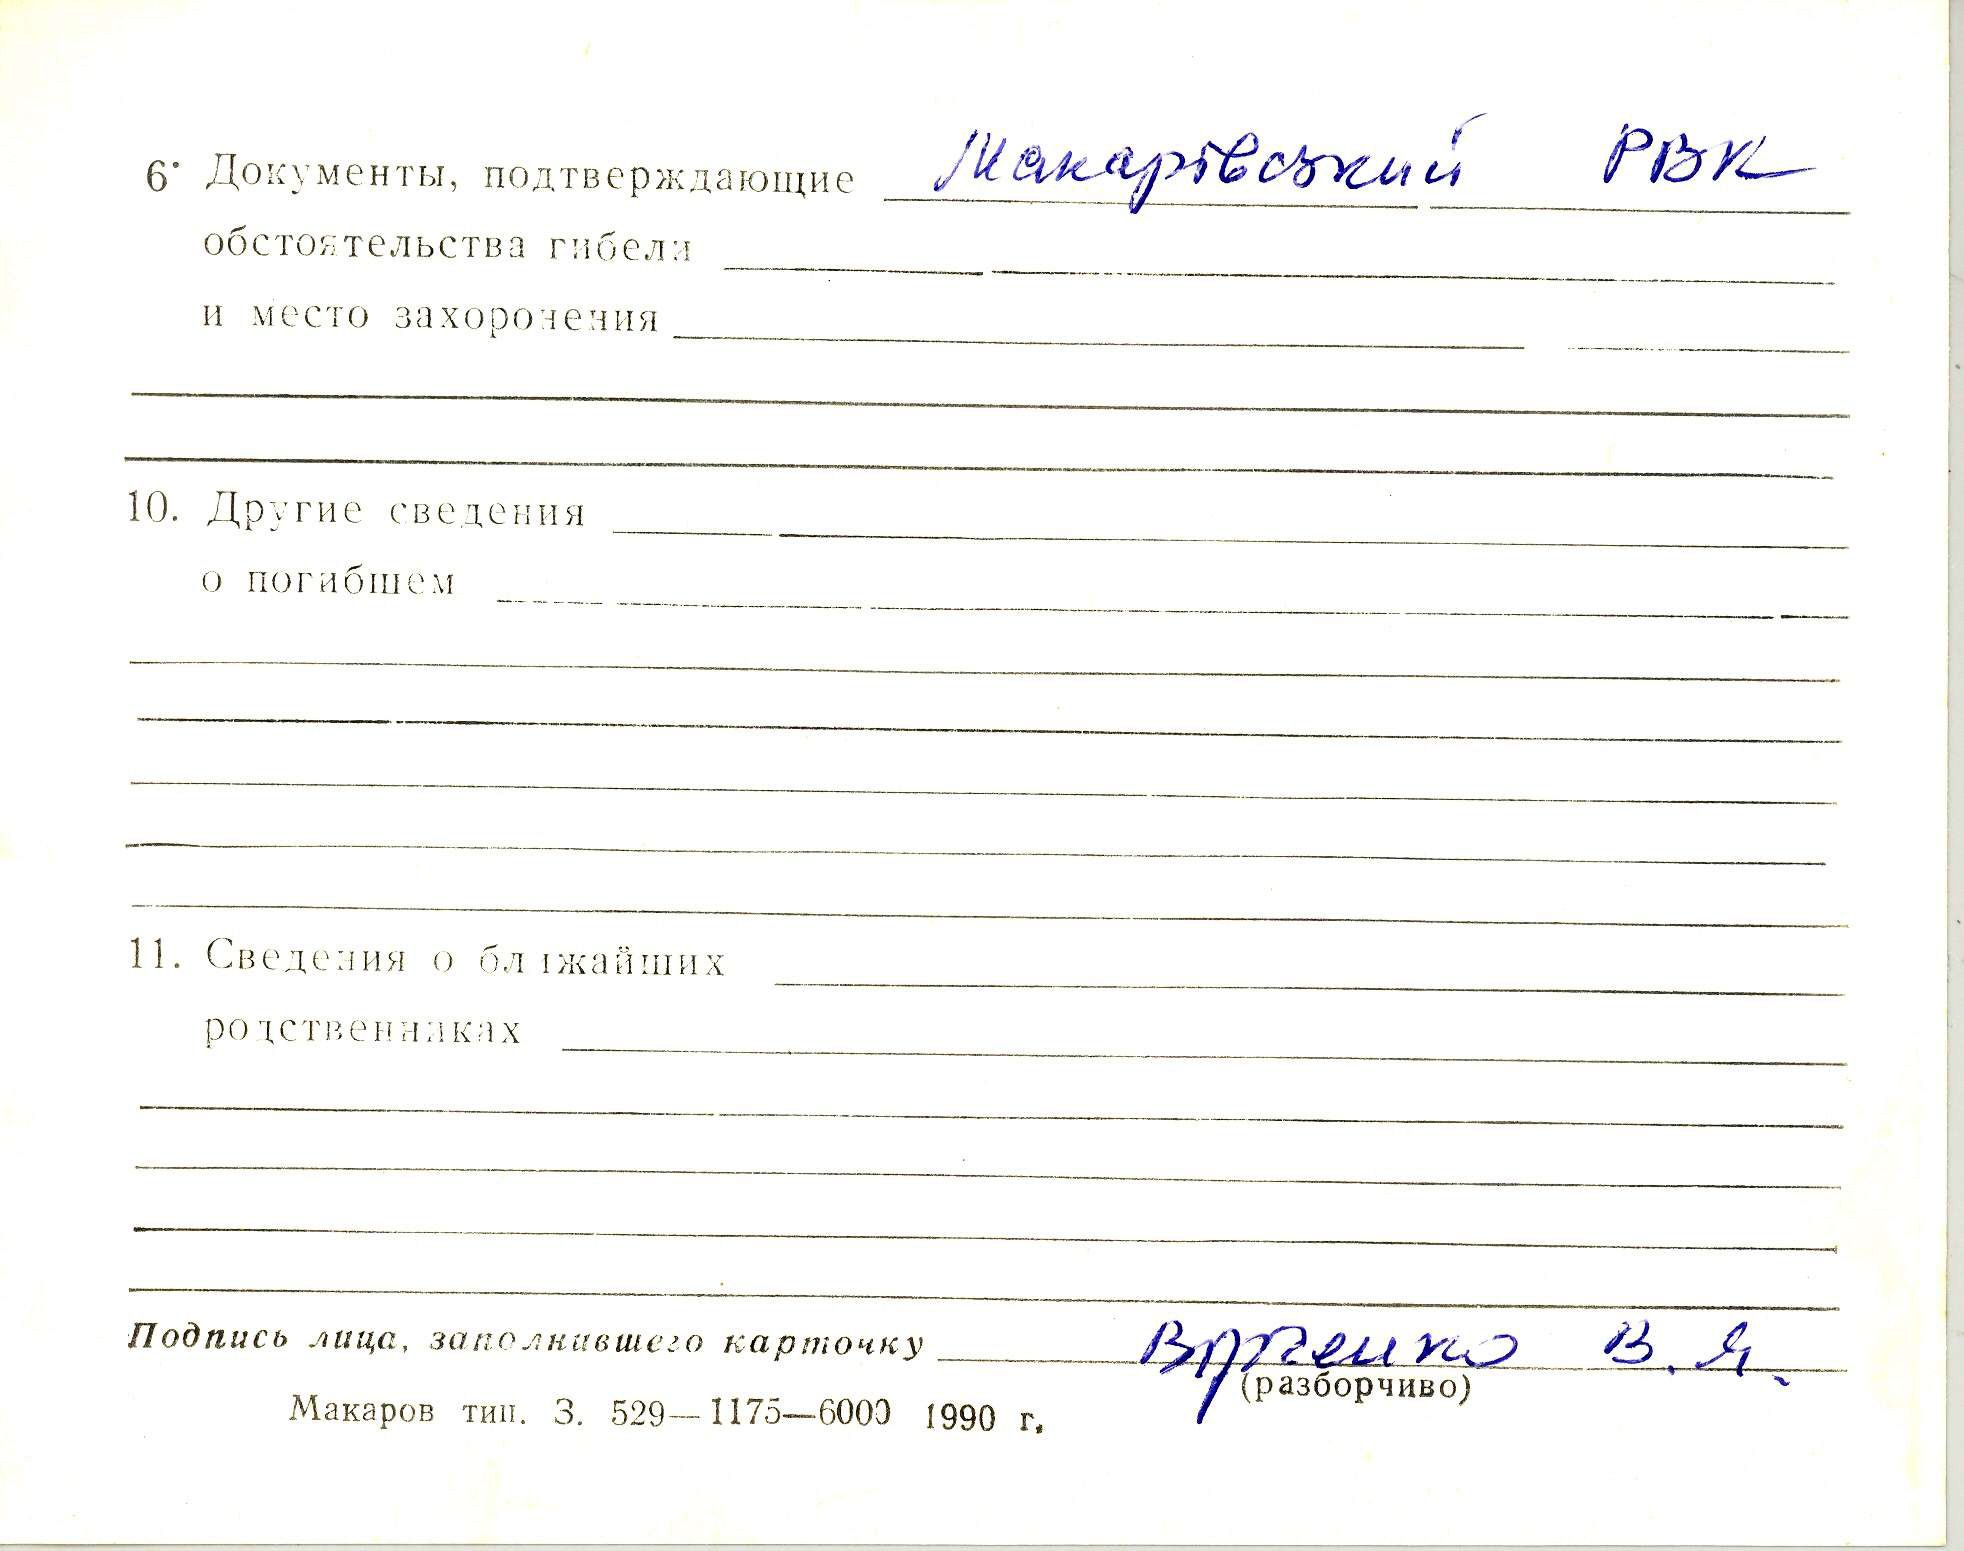 6. Документы, подтверждающие Макарівський РВК
обстоятельства гибели
и место захоронения
10. Другие сведения
о погибшем
11. Сведения о ближайших
родственниках
Подпись лица, заполнившего карточку В. Я.
(разборчиво)
Макаров тип. З. 529—1175—6000 1990 г.